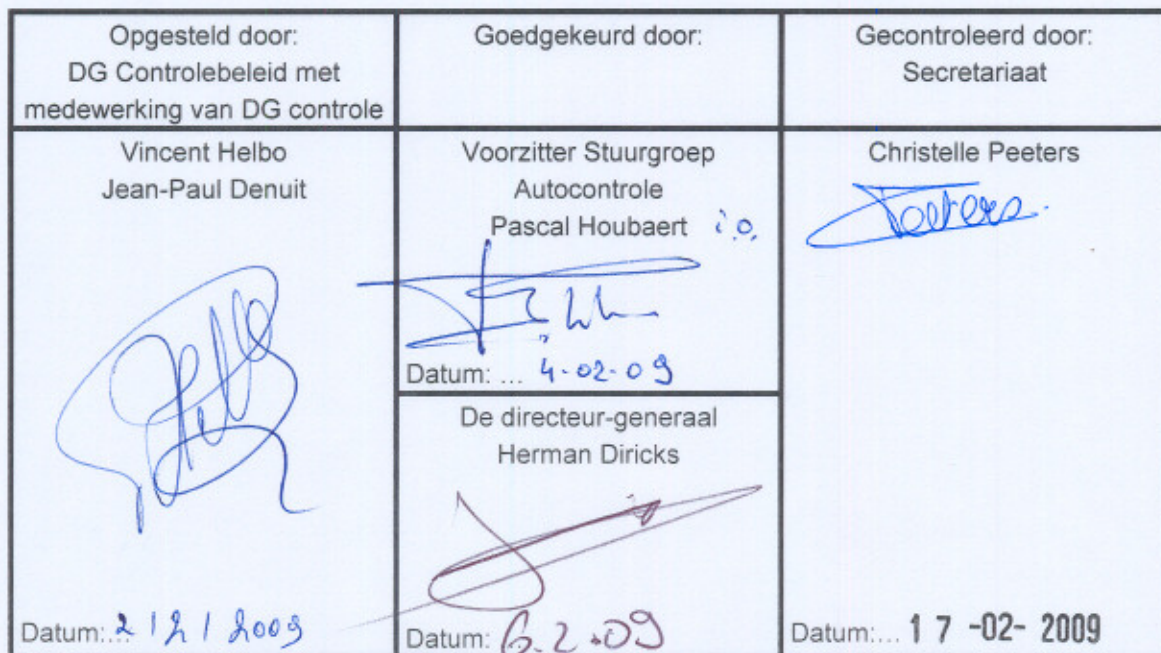 Opgesteld door:
DG Controlebeleid met
medewerking van DG controle
Goedgekeurd door:
Gecontroleerd door:
Secretariaat
Vincent Helbo
Jean-Paul Denuit
Datum:... 2/2/2009
Voorzitter Stuurgroep
Autocontrole
Pascal Houbaert i.o.
Datum: ... 4-02-09
De directeur-generaal
Herman Diricks
Datum: 6.2.09
Christelle Peeters
Peeters
Datum:... 17 -02- 2009